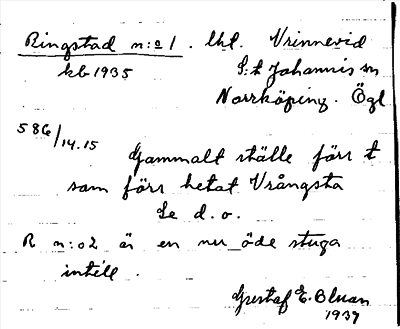 Ringstad n:o 1. lht. Vrinnevid
kb 1935 S:t Johannis sn
Norrköping. Ögl
586/14.15
Gammalt ställe förr t
som förr hetat Vrångsta
Se d. o.
R n:o 2 är en nu öde stuga
intill.
Gustaf E. Bluan
1937